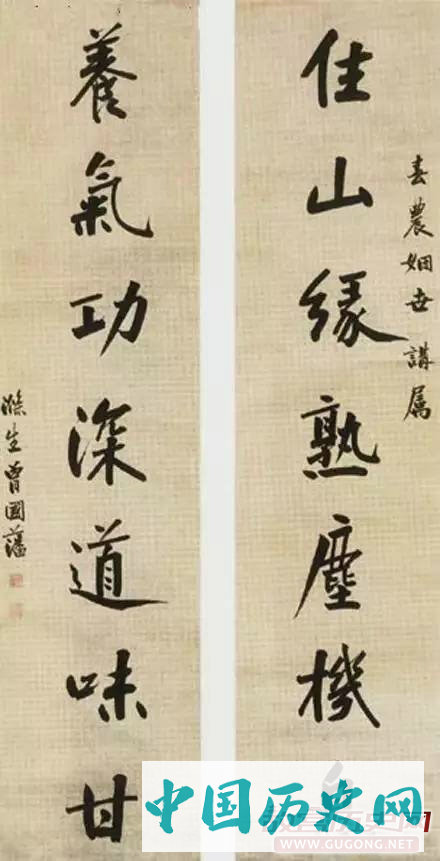 春農姻世講屬
住山緣熟塵機
養氣功深道味甘
滌生曾國藩
中国历史网
WWW.GUGONG.NET